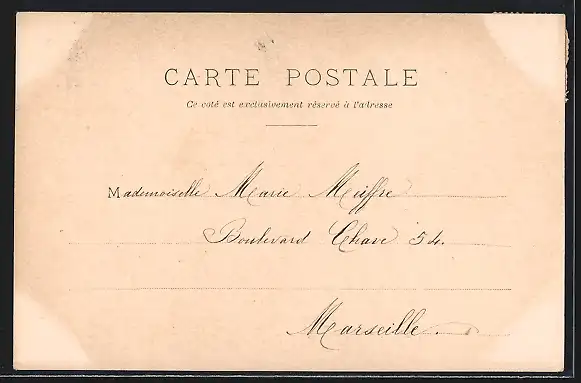 CARTE POSTALE
Ce coté est exclusivement réservé à l'adresse
Mademoiselle Marie Meiffre
Boulevard Chave 54.
Marseille.